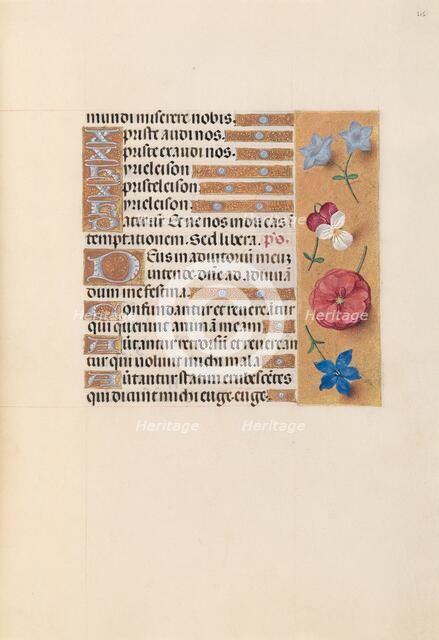 mundi miserere nobis.
Xpriste audi nos.
Xpriste exaudi nos.
Kyrieleison
Xpristeleison
Kyrieleison
Et ne nos inducas ĩ
temptationem. Sed libera. p̄s.
Deus in adiutoriũ meuz
intende dñe ad adiuuã
dum me festina
Confundantur et reuereãtur
qui querunt animam meam
Auertantur retrorsũ et
tur qui uolunt michi mala
Auertantur statim erubescẽtes
qui dicunt michi euge euge.
Heritage
Heritage
Heritage
Heritage
Heritage
Heritage